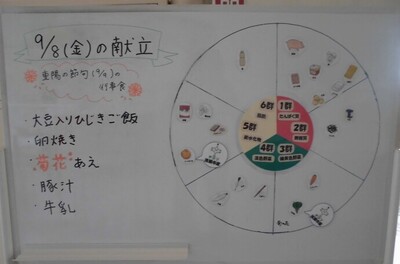 9/8(金)の献立
重陽の節句(9/9)の
行事食
・大豆入りひじきご飯
・卵焼き
・菊花あえ
・豚汁
・牛乳
6群
1群
たんぱく質
5群
2群
無機質
炭水化物
4群
3群